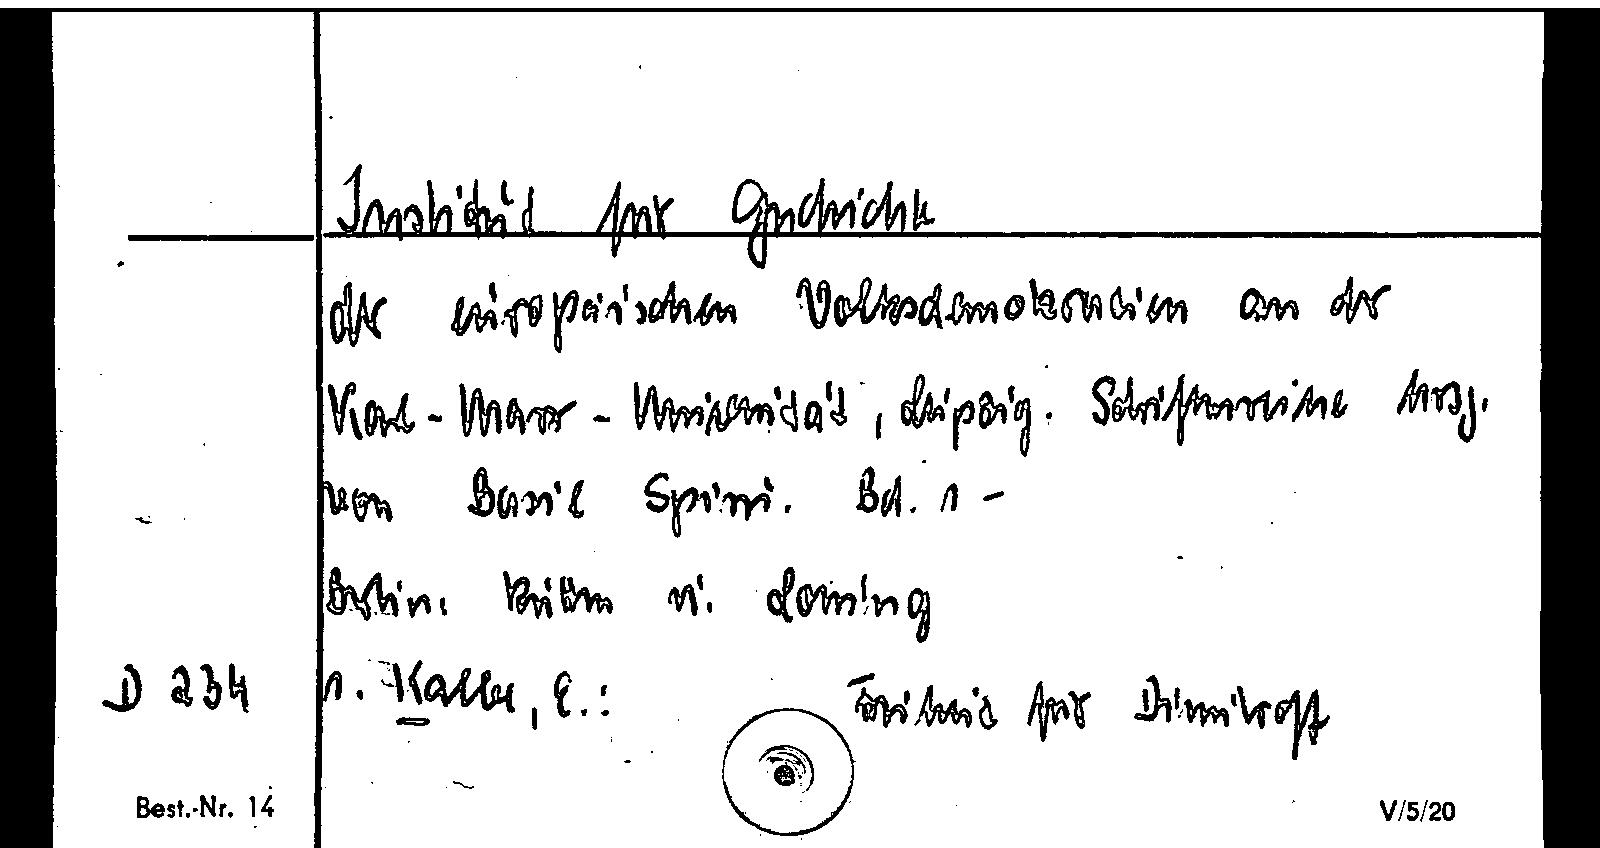 Institut für Geschichte
der europäischen Volksdemokratien an der
Karl-Marx-Universität, Leipzig. Schriftenreihe hrsg.
von Basil Spiru. Bd. 1 -
Berlin: Rütten u. Loening
D 234 1. Kalbe, E.: Freiheit für Dimitroff
Best.-Nr. 14 V/5/20